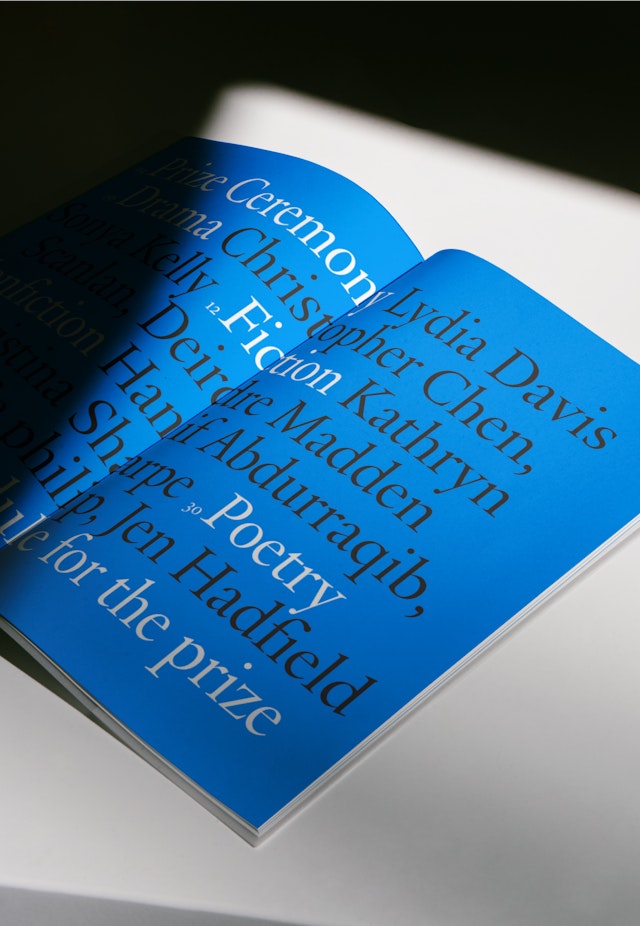 Prize Ceremony Lydia Davis
Drama Christopher Chen,
Sonya Kelly 12 Fiction Kathryn
Scanlan, Deirdre Madden
nfiction Hanif Abdurraqib,
stina Sharpe 30 Poetry
philip, Jen Hadfield
for the prize